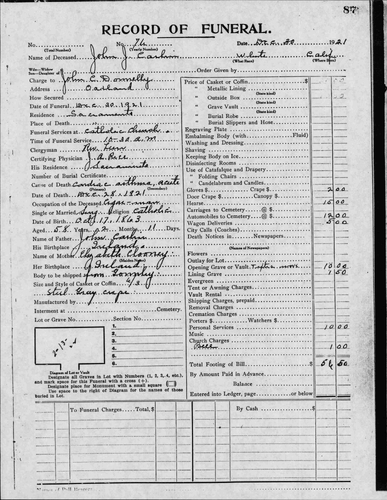 87
RECORD OF FUNERAL.
No. No. 74 Date, Dec. 30 1921
(Total Number) (Yearly Number)
Name of Deceased John J. White Calif.
(What Race) (Where Born)
Charge to John C. Donnelly Order Given by
Address Oarland
How Secured
Date of Funeral Dec. 30. 1921
Residence Sacramento
Place of Death
Funeral Services at Catholic Church.
Time of Funeral Service 10-30 a.m.
Clergyman Rev.
Certifying Physician J. A.
His Residence Sacramento
Number of Burial Certificate
Cause of Death Cardiac asthma, acute
Date of Death Dec. 28. 1921
Occupation of the Deceased Cigar-man
Single or Married Sing. Religion Catholic
Date of Birth Oct. 17. 1863
Aged 58 Years 2 Months 11 Days
Name of Father John
His Birthplace Ireland
Name of Mother Elizabeth
(Maiden Name)
Her Birthplace Ireland
Body to be shipped to
Size and Style of Casket or Coffin 6/3
Gray crepe
Manufactured by
Interment at Cemetery
Lot or Grave No. Section No.
1.
2.
3.
4.
5.
6.
Diagram of Lot or Vault
Designate all Graves in Lot with Numbers (1, 2, 3, 4, etc.),
and mark space for this Funeral with a cross (+).
Designate place for Monument with a small square
Use space to the right of Diagram for the names of those
Buried in Lot.
Price of Casket or Coffin
" Metallic Lining
" Outside Box
" Grave Vault
" Burial Robe
" Burial Slippers and Hose
Engraving Plate
Embalming Body (with Fluid)
Washing and Dressing
Shaving
Keeping Body on Ice
Disinfecting Rooms
Use of Catafalque and Drapery
" Folding Chairs
" Candelabrum and Candles
Gloves $ 2 00
Door Crape $ Canopy $
Hearse 15 00
Carriages to Cemetery @ $
Automobiles to Cemetery @ $ 12 00
Wagon Deliveries 5 00
City Calls (Coaches)
Death Notices in Newspapers
(Names of Newspapers)
Flowers
Outlay for Lot
Opening Grave or Vault 10 00
Lining Grave 1 50
Evergreen
Tent or Awning Charges
Vault Rental
Shipping Charges, prepaid
Removal Charges
Cremation Charges
Porters $ Watchers $
Personal Services 10 00
Music
Church Charges
Bell 1 00
Total Footing of Bill $ 56 50
By Amount Paid in Advance
Balance
Entered into Ledger, page or below
To Funeral Charges Total, $ By Cash $